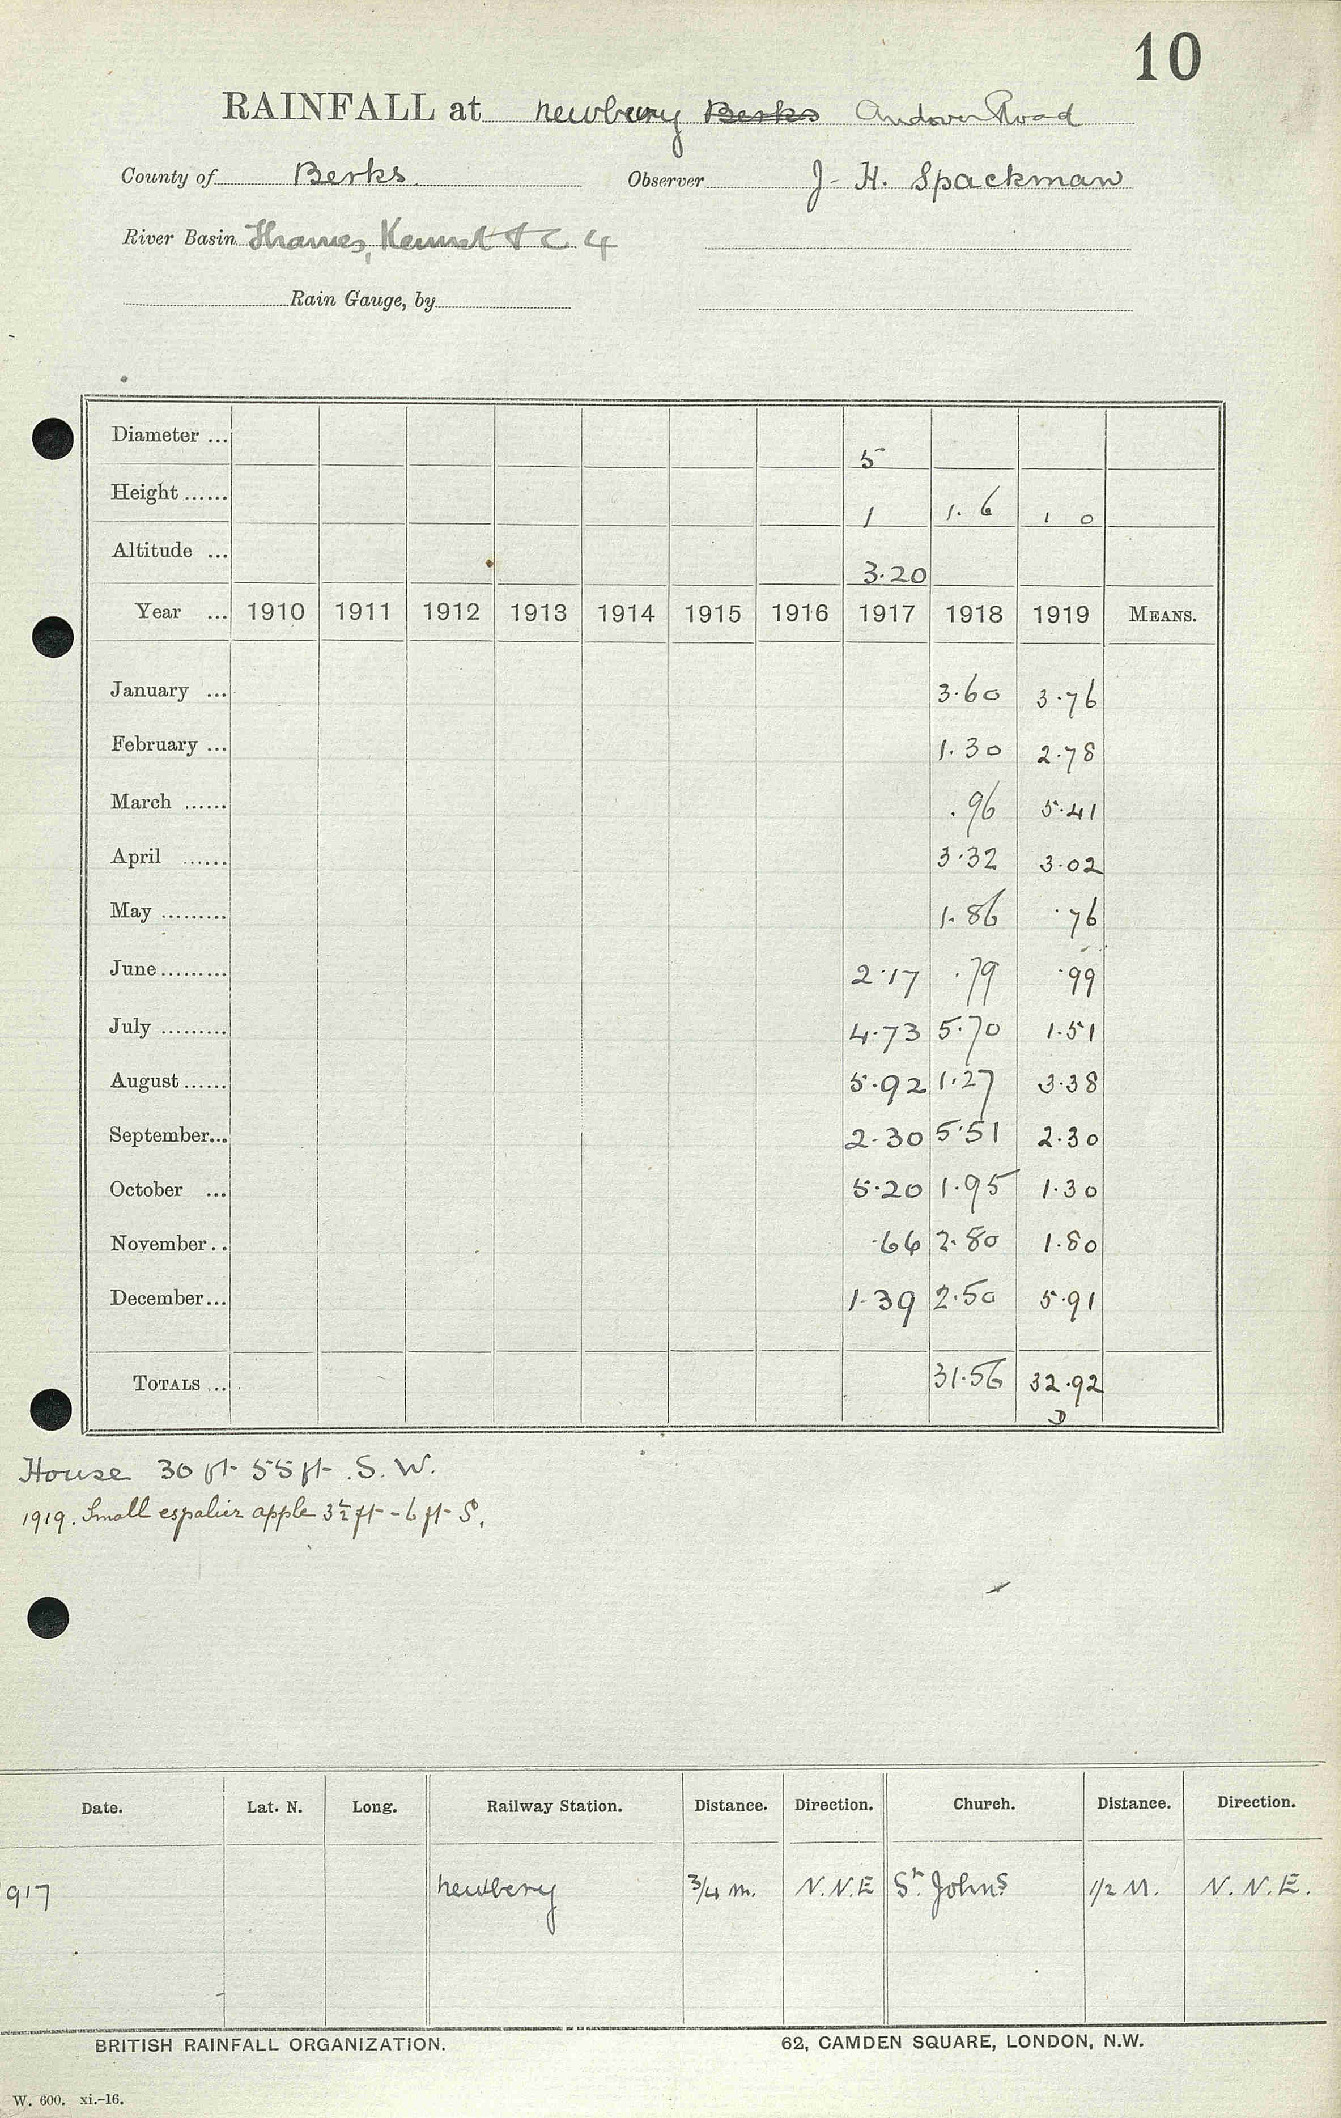 10
RAINFALL at Newbury Berks Andover Road
County of Berks. Observer J. H. Spackman
River Basin Thames, Kennet + C 4
Rain Gauge, by
Diameter ... 5
Height ...... 1 1.6 1 0
Altitude ... 3.20
Year ... 1910 1911 1912 1913 1914 1915 1916 1917 1918 1919 MEANS.
January ... 3.60 3.76
February ... 1.30 2.78
March ...... .96 5.41
April ...... 3.32 3.02
May ......... 1.86 .76
June ......... 2.17 .79 .99
July ......... 4.73 5.70 1.51
August ...... 5.92 1.27 3.38
September... 2.30 5.51 2.30
October ... 5.20 1.95 1.30
November .. .66 2.80 1.80
December... 1.39 2.50 5.91
TOTALS ... 31.56 32.92
D
House 30 ft 55 ft S.W.
1919. Small espalier apple 3½ ft - 6 ft S.
Date. Lat. N. Long. Railway Station. Distance. Direction. Church. Distance. Direction.
917 Newbery 3/4 m. N.N.E St. Johns 1/2 M. N.N.E.
BRITISH RAINFALL ORGANIZATION. 62, CAMDEN SQUARE, LONDON, N.W.
W. 600. xi.-16.